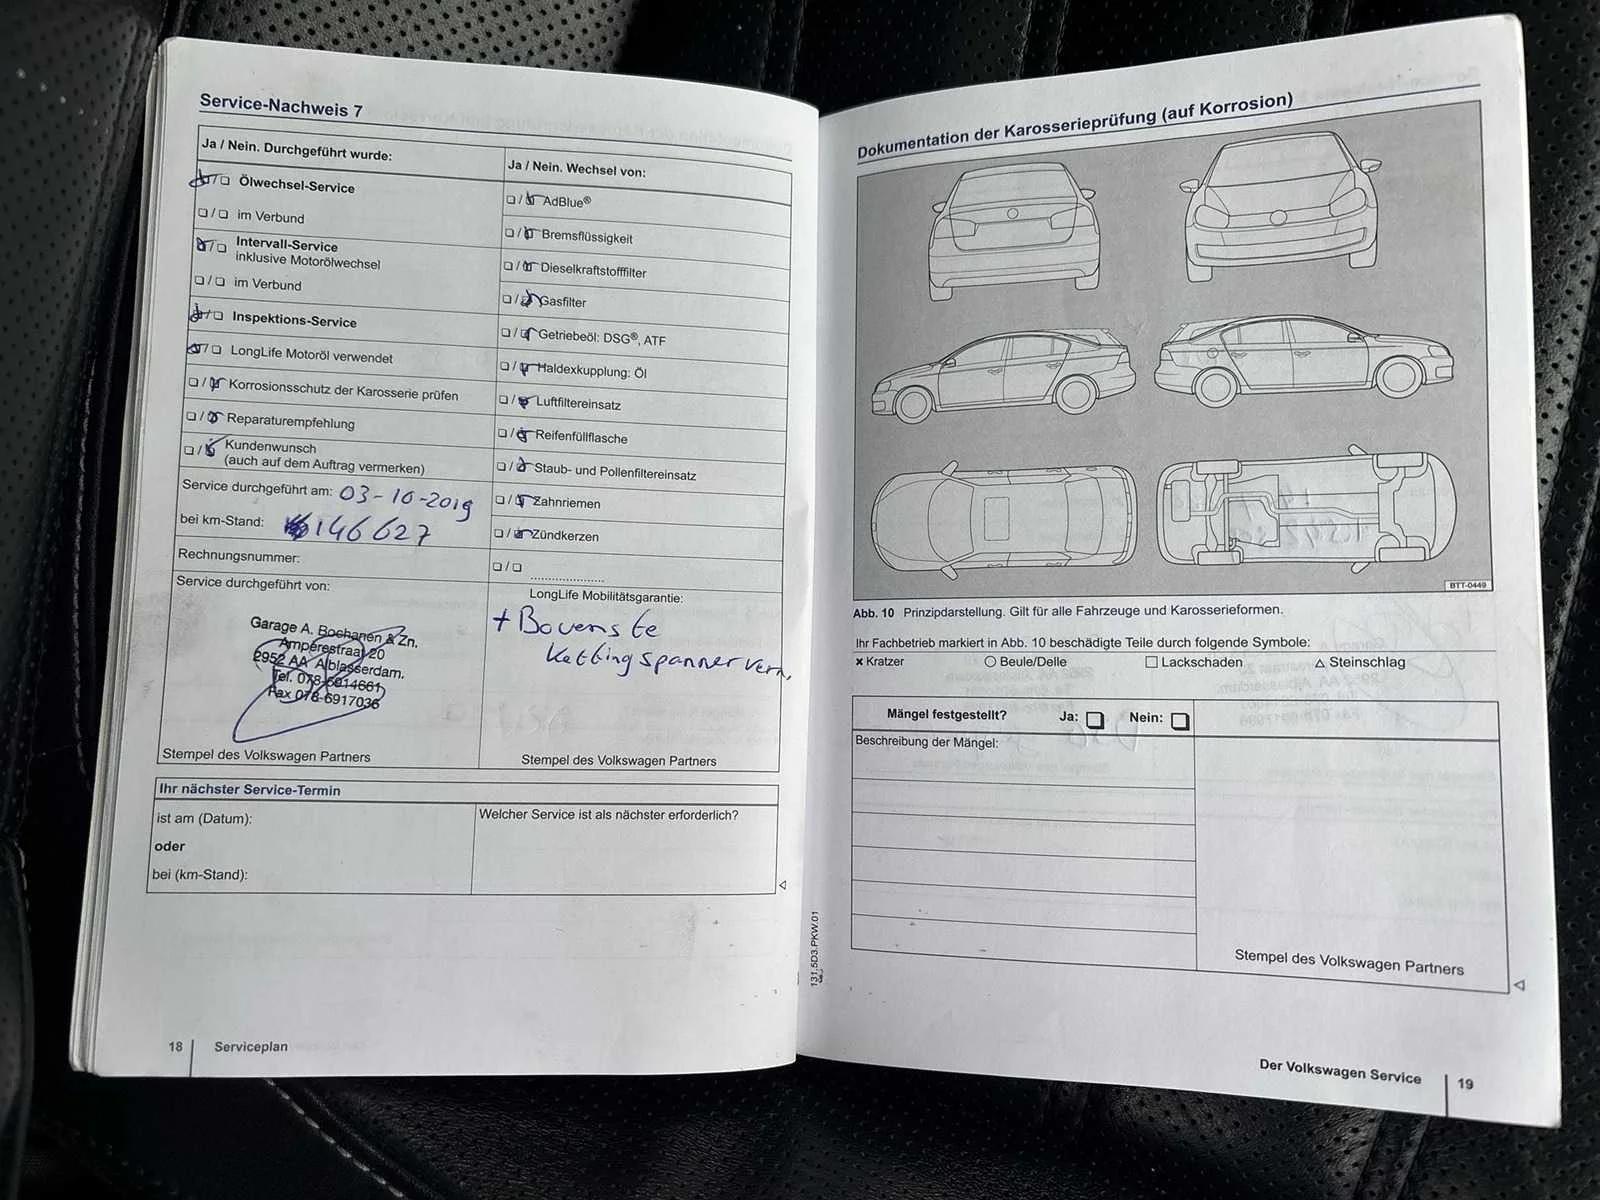 Service-Nachweis 7
Ja / Nein. Durchgeführt wurde:
Ölwechsel-Service
im Verbund
Intervall-Service
inklusive Motorölwechsel
im Verbund
Inspektions-Service
LongLife Motoröl verwendet
Korrosionsschutz der Karosserie prüfen
Reparaturempfehlung
Kundenwunsch
(auch auf dem Auftrag vermerken)
Service durchgeführt am: 03-10-2019
bei km-Stand: 146627
Rechnungsnummer:
Service durchgeführt von:
Garage A. Bochanen & Zn.
Amperestraat 20
2952 AA Alblasserdam.
Tel. 078-6914661
Fax 078-6917036
Stempel des Volkswagen Partners
Ja / Nein. Wechsel von:
AdBlue®
Bremsflüssigkeit
Dieselkraftstofffilter
Gasfilter
Getriebeöl: DSG®, ATF
Haldexkupplung: Öl
Luftfiltereinsatz
Reifenfüllflasche
Staub- und Pollenfiltereinsatz
Zahnriemen
Zündkerzen
LongLife Mobilitätsgarantie:
+ Bovenste
Kettingspanner vern.
Stempel des Volkswagen Partners
Ihr nächster Service-Termin
ist am (Datum):
oder
bei (km-Stand):
Welcher Service ist als nächster erforderlich?
18 Serviceplan
Dokumentation der Karosserieprüfung (auf Korrosion)
BTT-0449
Abb. 10 Prinzipdarstellung. Gilt für alle Fahrzeuge und Karosserieformen.
Ihr Fachbetrieb markiert in Abb. 10 beschädigte Teile durch folgende Symbole:
× Kratzer ○ Beule/Delle □ Lackschaden △ Steinschlag
Mängel festgestellt? Ja: □ Nein: □
Beschreibung der Mängel:
Stempel des Volkswagen Partners
131.5D3.PKW.01
Der Volkswagen Service 19